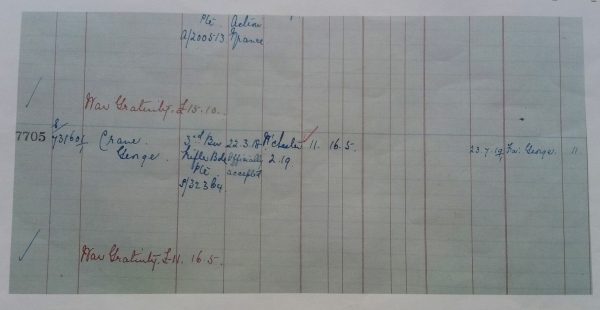 Pte. Action
A/200513 France
War Gratuity. £15.10.
7705 731601/1 Crane. 3rd Bn 22.3.18 W'chester 11. 16. 5. 23.7.19 Fa: George. 11
George. Rifle Bde Officially 2.19.
Pte accepted
S/32364
War Gratuity. £11. 16. 5.